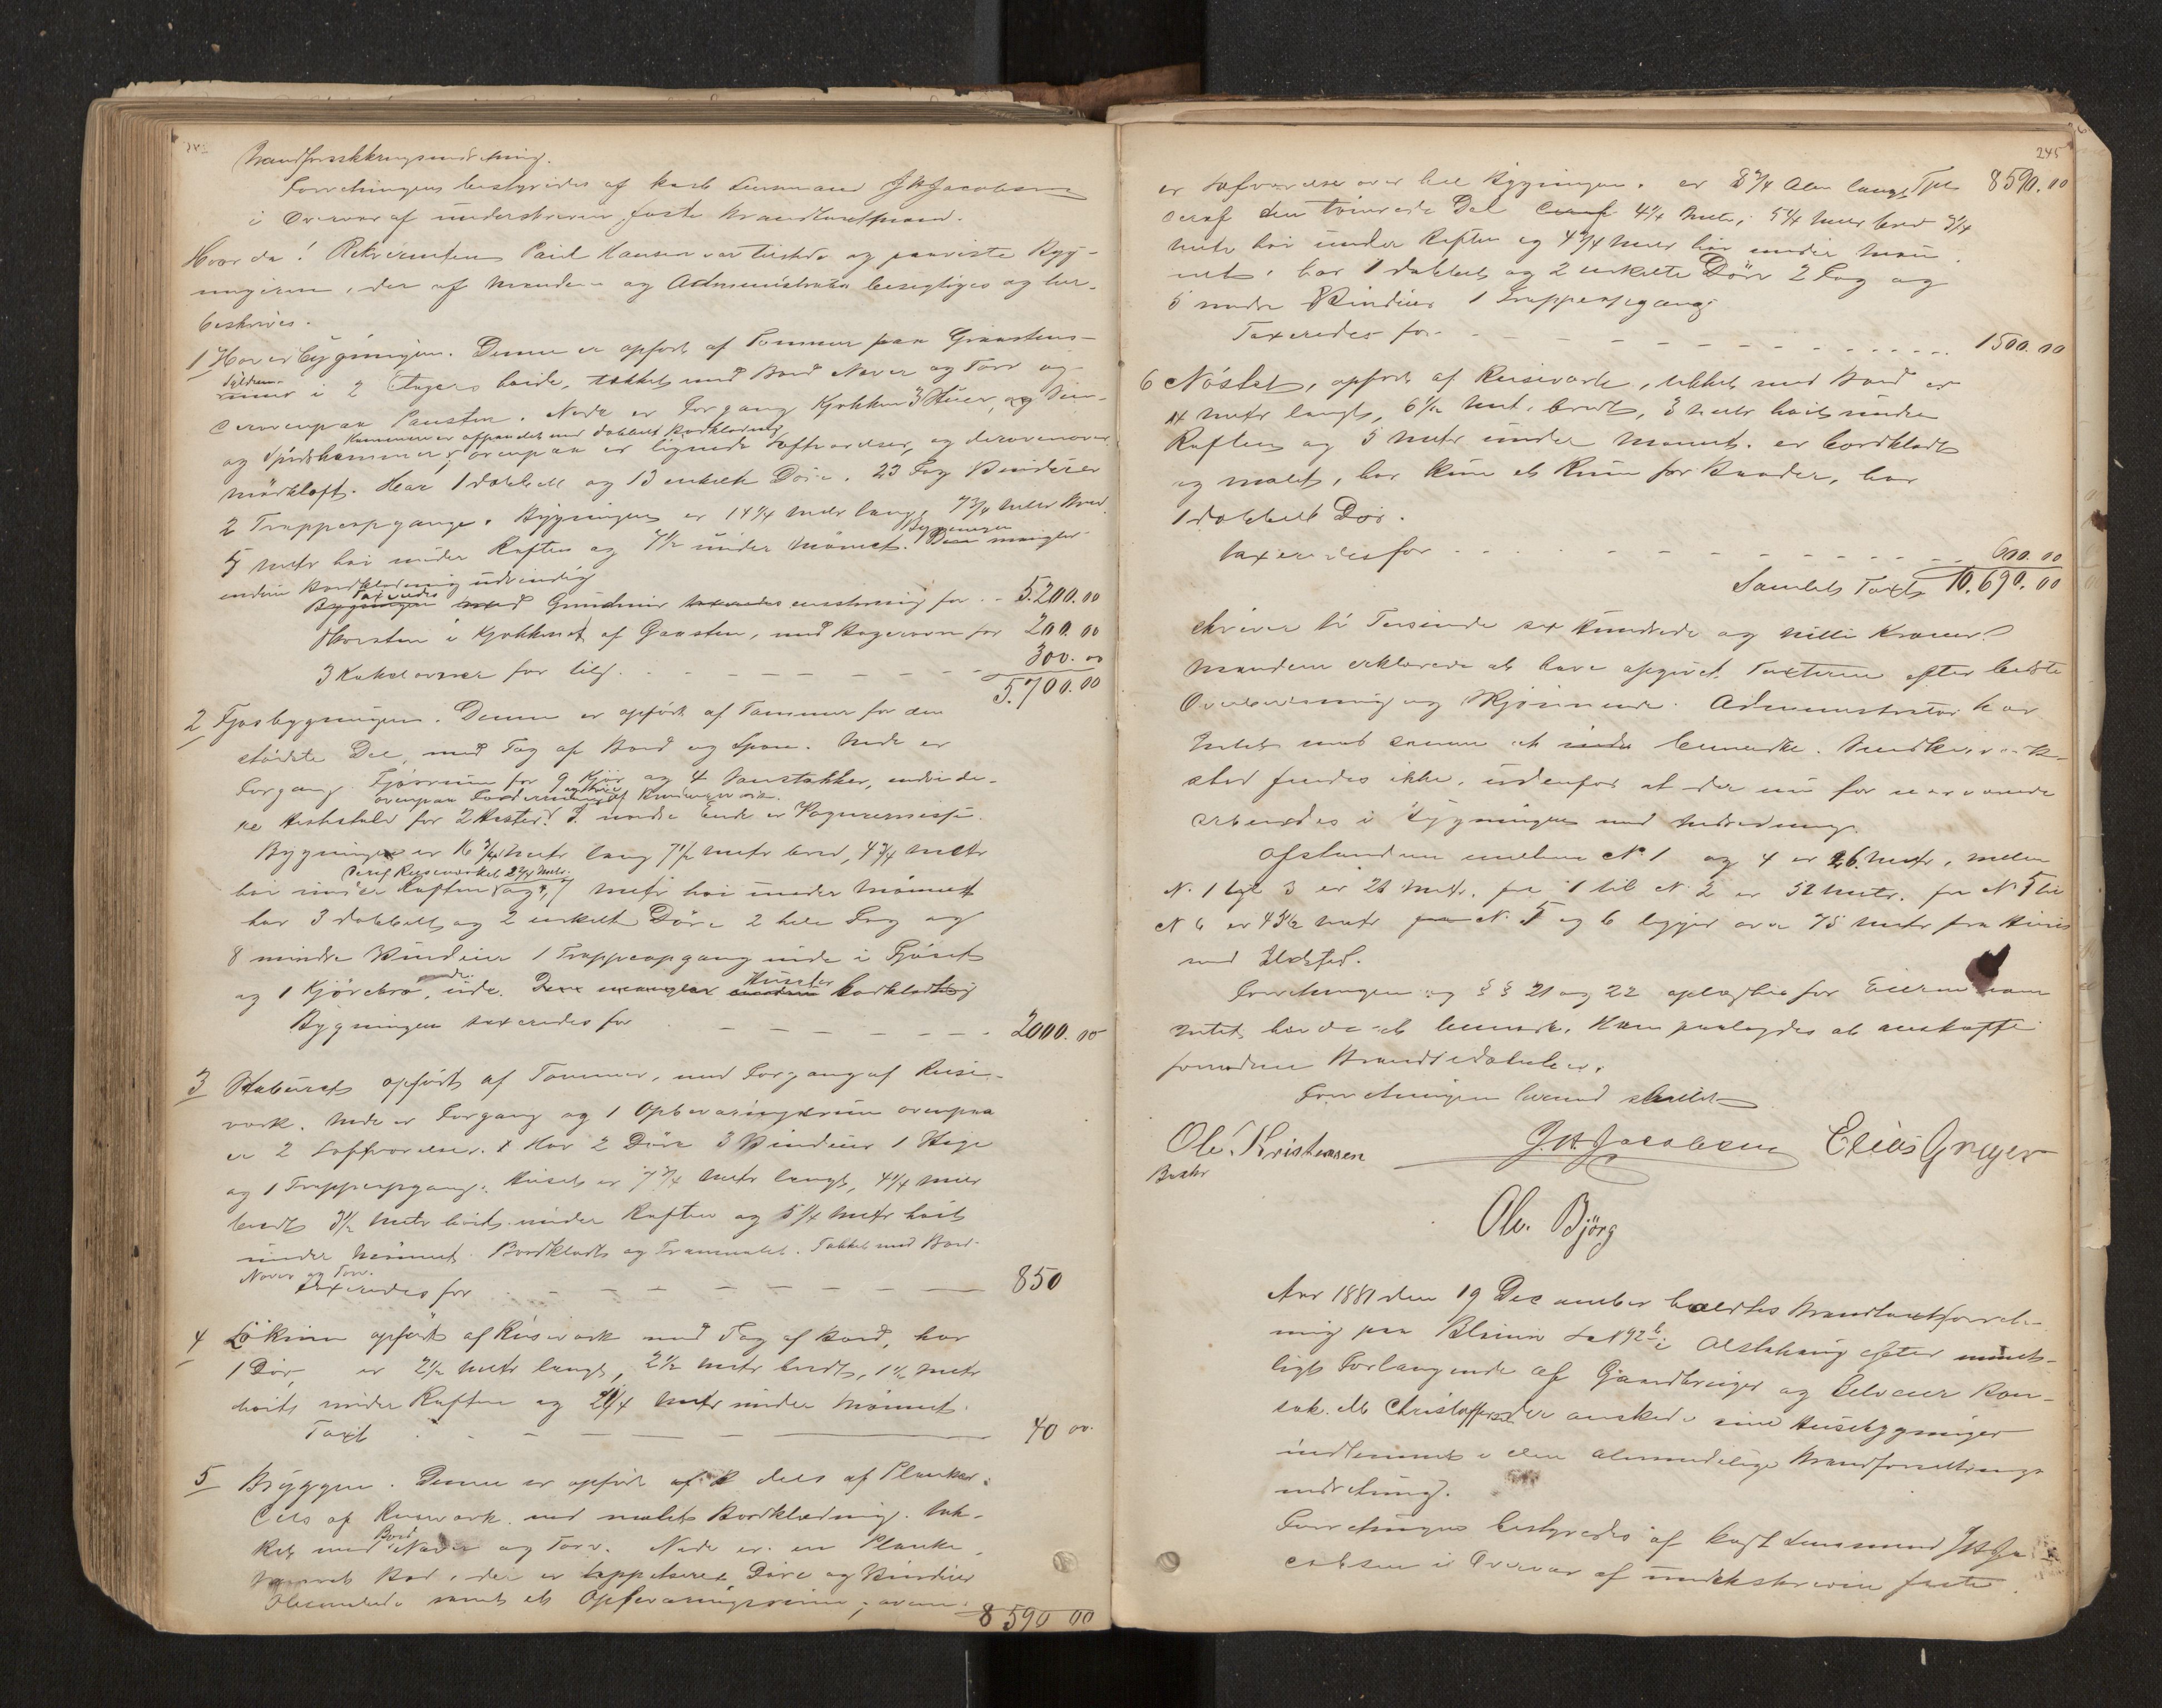 Brandforsikringsindretning.
Forretningen bestyredes af konst Lensmand J H Jacobsen
i Overvær af underskrevne faste Brandtaxtmænd.
Hvorda! Rekvirenten Paul Hansen var tilstede og paaviste Byg-
ningerne, der af Mændene og Administrator besigtiges og her-
beskrives.
1 Hovedbygningen. Denne er opført af Tømmer paa Graastens-
muur i 2 Etagers høide, tækket med Bord Næver og Torv og
ovenpaa Pansten. Nede er Forgang Kjøkken 3 Stuer, og
Kammeret er afpanelet med dobbelt Bordklædning
og Spisekammer; ovenpaa er lignende Loftværelser, og derovenover
mørkloft. Har 1 dobbelt og 13 enkelte Døre. 23 Fag Vinduer
2 Trappeopgange. Bygningen er 14 1/4 Meter lang, 7 3/4 Meter bred
5 Metr høi under Raften og 7 1/2 under Mønnet. Bygningen mangler
endnu Bordklædning udvendig
Bygningen Taxeredes med Grundmur taxeredes for .. 5.200.00
Skorsten i Kjøkkenet af Graasten, med Bagerovn for 200.00
3 Kakelovner for tils. - - - 300.00
5.700.00
2 Fjøsbygningen. Denne er opført af Tømmer for den
største Del, med Tag af Bord og Spon. Nede er
Forgang Fjøsrum for 9 Kjør og 4 Baustakker, endvide-
ovenpaa Foderrum
re Hestestald for 2 Heste. I nordre Ende er Vognremisse.
Bygningen er 16 3/4 Metr lang 7 1/2 Metr bred, 4 3/4 Metr
deraf Reisverket 2 3/4 Metr.
høi under Raften og 7 Metr høi under Mønnet
har 3 dobbelte og 2 enkelte Døre 2 hele Fag og
8 mindre Vinduer 1 Trappeopgang inde i Fjøset
og 1 Kjørebro ude. Den mangler endnu bordklædning
Bygningen taxeredes for - - - 2000.00
3 Staburet opført af Tømmer, med Forgang af Reis-
værk. Nede er Forgang og 1 Opbevaringsrum ovenpaa
er 2 Loftværelser. Har 2 Døre 3 Vinduer 1 Stige
og 1 Trappeopgang. Huset er 7 3/4 Metr langt, 4 1/4 Meter
bredt 3 1/2 Metr høit under Raften og 5 1/4 Metr høit
under Mønnet. Bordklædt og Tranmalet. Tækket med Bord
Næver og Torv.
Taxeredes for - - - 850
4 opført af Reisværk med Tag af Bord, har
1 Dør, er 2 1/2 Metr langt, 2 1/2 Metr bredt, 1 1/2 Metr
høit under Raften og 2 1/4 Metr under Mønnet.
Taxt - - - 40 00.
5 Bryggen. Denne er opført dels af Planker
dels af Reisværk med malet Bordklædning. tæk-
Bord
ket med Næver og Torv. Nede er en Planke-
Bod, der er Døre og Vinduer
samt et Opbevaringsrum; oven-
8 590 00
245
er Loftværelse over hele Bygningen. er 8 3/4 Alen langt Tpt 8590.00
deraf den tømrede Del 4 1/4 Metr, 5 1/4 Meter bred 3/4
Metr høi under Raften og 4 3/4 Meter høi under Møn-
net. har 1 dobbelt og 2 enkelte Døre 2 Fag og
5 mindre Vinduer 1 Trappeopgang.
Taxeredes for - - - 1500.00
6 Nøstet, opført af Reisværk, tækket med Bord er
11 Metr langt, 6 1/2 Met. bredt, 3 Metr høit under
Raften og 5 Metr under Mønnet. er bordklædt
og malet, har kun et Rum for Baader, har
1 dobbelt Dør.
taxeredes for - - - 600.00
Samlet Taxt 10.690.00
skriver ti Tusinde sex Hundrede og nitti Kroner.
Mændene erklærede at have afgivet Taxterne efter bedste
Overbevisning og Skjønnende. Administrator har
Intet mod samme at bemærke.
sted findes ikke, udenfor at der nu for nærværende
arbeides i Bygningen med Indredning.
Afstanden mellem No 1 og 4 er 26 Metr, mellem
No. 1 og 3 er 21 Metr, fra 1 til No. 2 er 52 Metr. fra No 5 til
No 6 er 43 1/2 Metr No. 5 og 6 ligger over 75 Metr fra Huus
med Ildsted.
Forretningen og §§ 21 og 22 oplæstes for Eieren som
Intet havde at bemærke. Han paalagdes at anskaffe
fornødne Brandredskaber.
Forretningen hermed sluttet
Ole Kristensen J.H. Jacobsen Elias Greger
Ole. Bjørg
Aar 1881 den 19 December holdtes Brandtaxtforret-
ning paa Blsnr. 92 b i Alstahaug efter mundt-
ligt Forlangende af Gaardbruger og Selveier
Christoffersen der ønskede sine Husebygninger
indlemmet i den almindelige Brandforsikrings
indretning.
Forretningen bestyredes af kgst Lensmand J H Ja-
cobsen i Overvær af underskrevne faste